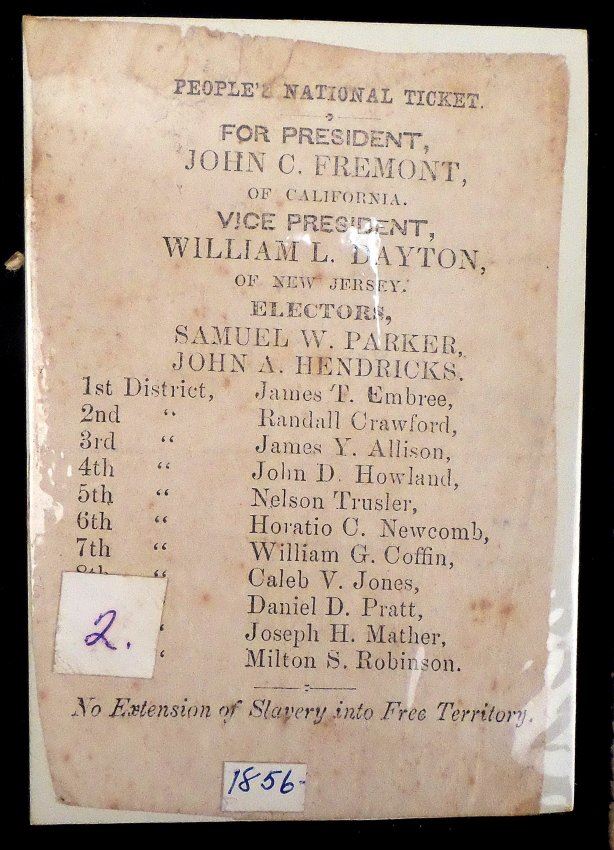 PEOPLE'S NATIONAL TICKET.
FOR PRESIDENT,
JOHN C. FREMONT,
OF CALIFORNIA.
VICE PRESIDENT,
WILLIAM L. DAYTON,
OF NEW JERSEY.
ELECTORS,
SAMUEL W. PARKER,
JOHN A. HENDRICKS.
1st District, James T. Embree,
2nd “ Randall Crawford,
3rd “ James Y. Allison,
4th “ John D. Howland,
5th “ Nelson Trusler,
6th “ Horatio C. Newcomb,
7th “ William G. Coffin,
8th “ Caleb V. Jones,
Daniel D. Pratt,
“ Joseph H. Mather,
“ Milton S. Robinson.
2.
No Extension of Slavery into Free Territory.
1856-